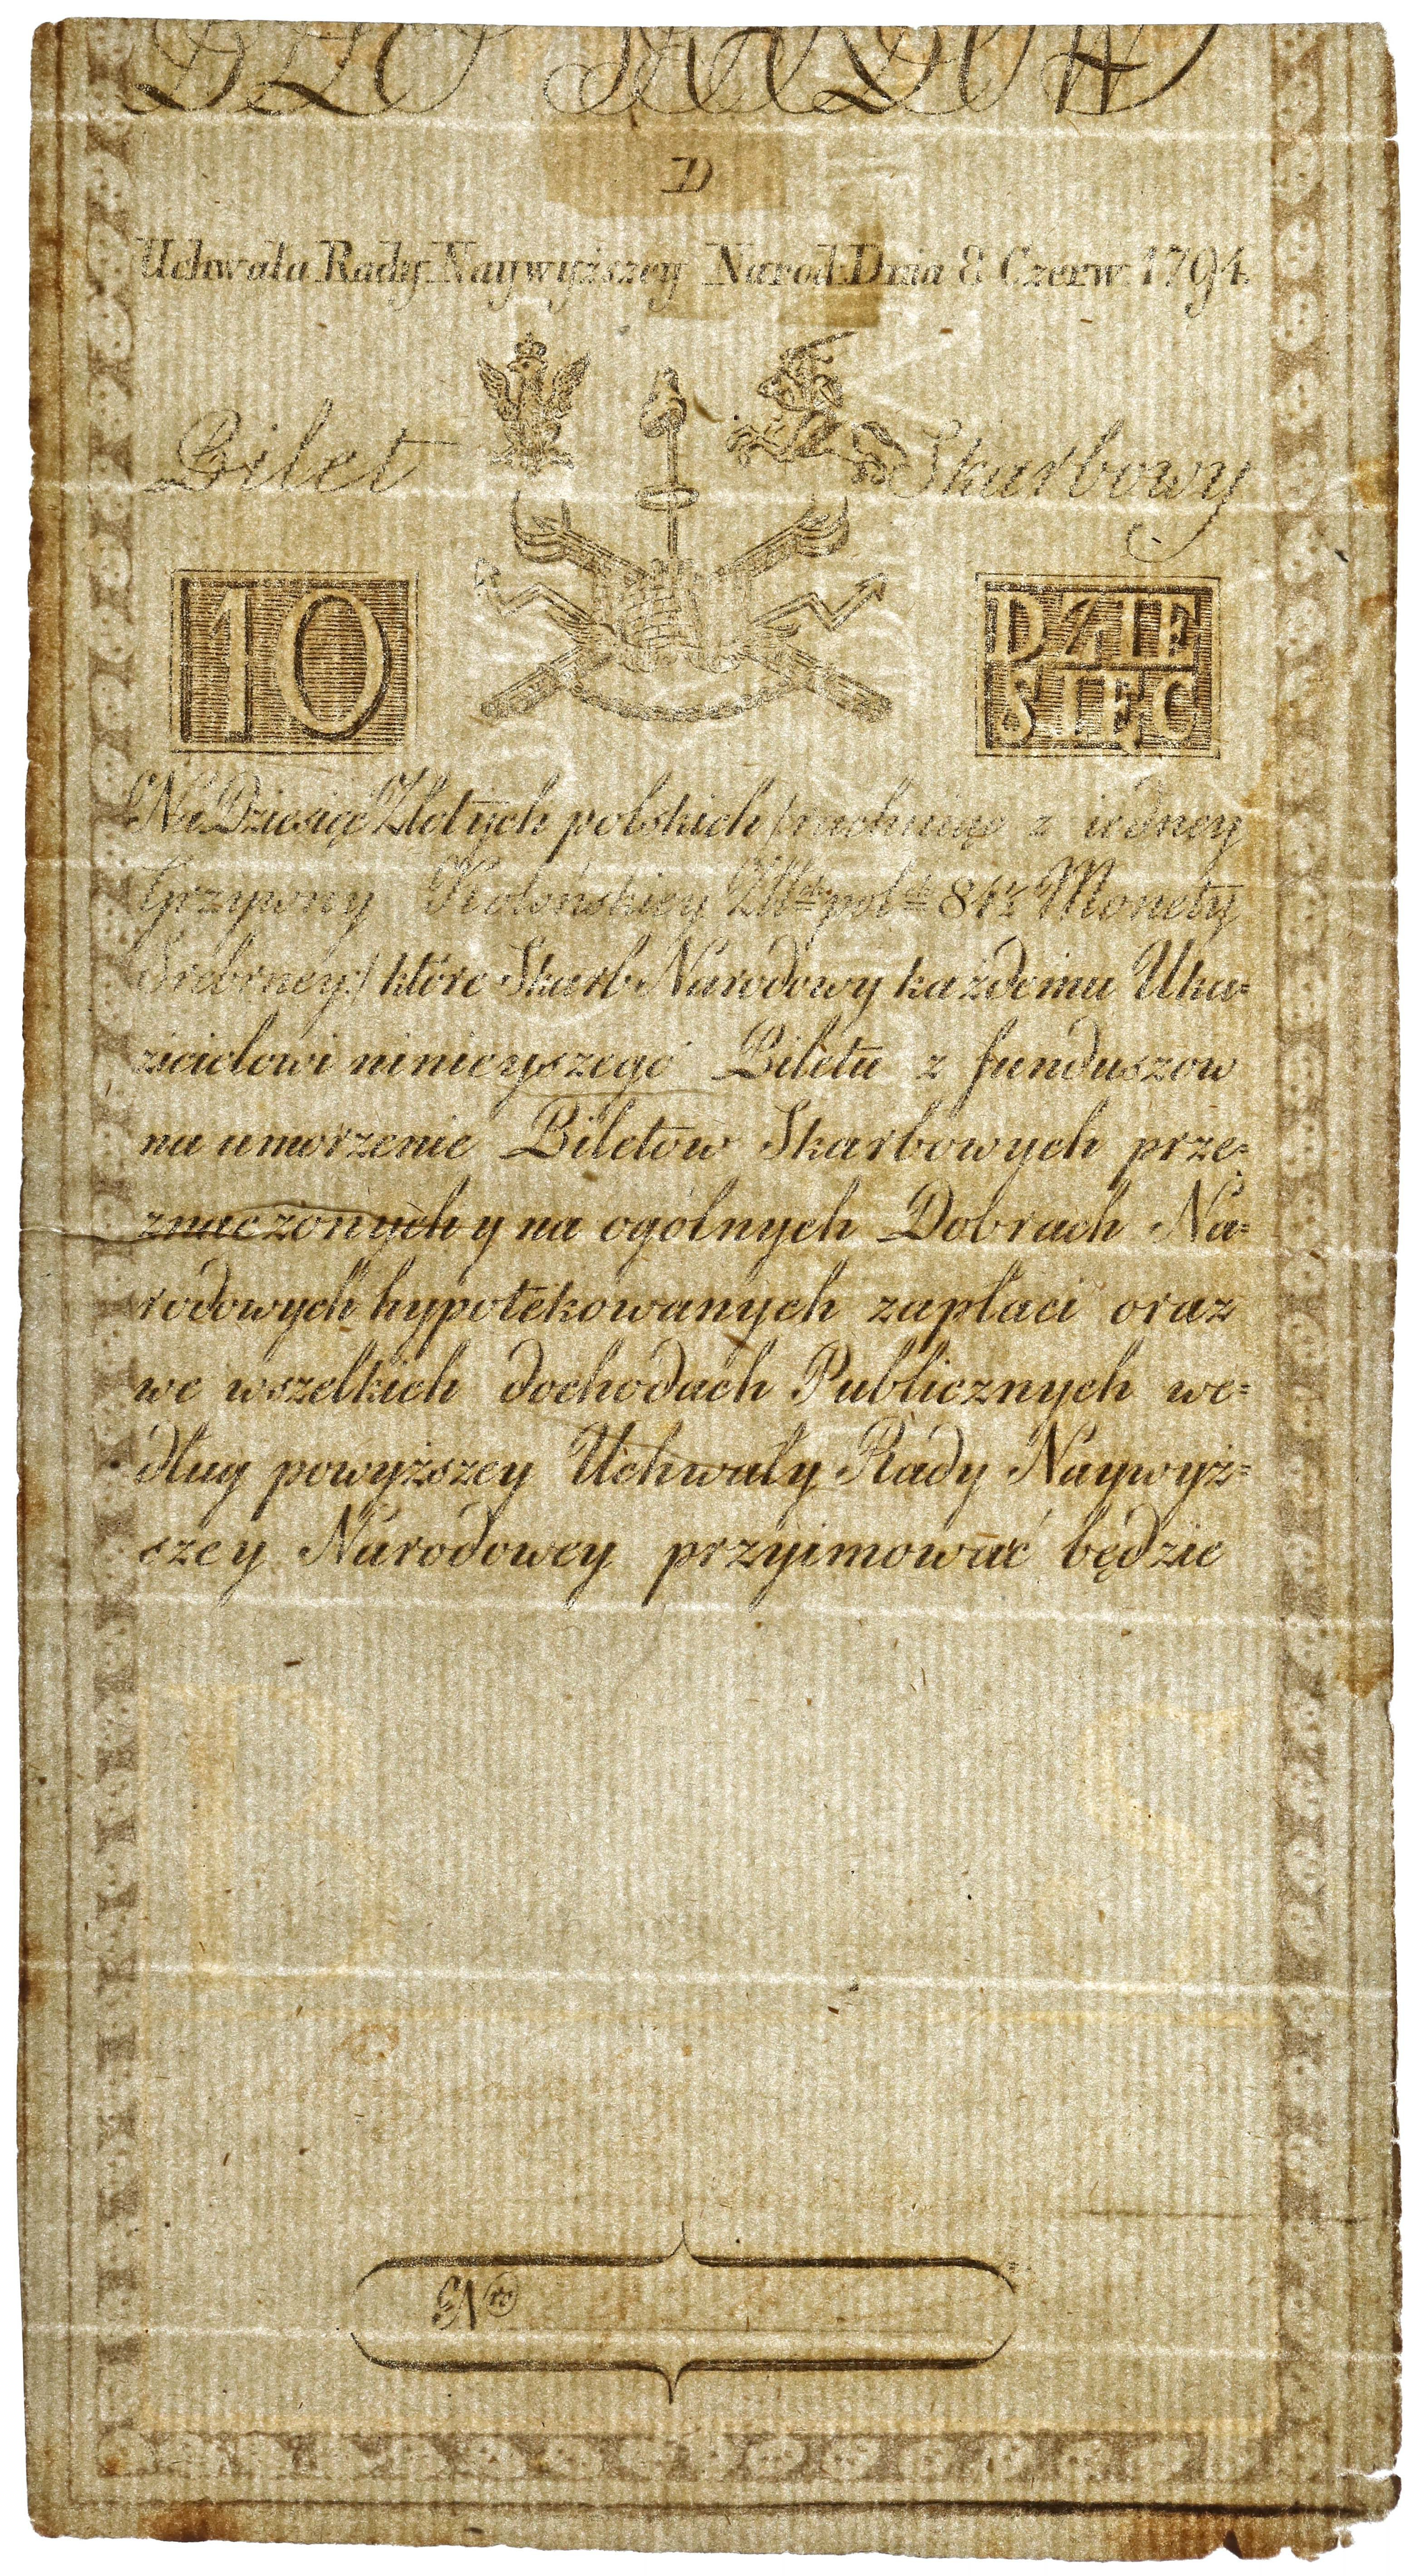 D
Uchwała Rady Naywyższey Narod: Dnia 8 Czerw: 1794.
Bilet Skarbowy
10 DZIE
SIĘĆ
Na Dziesięć Złotych polskich (rachuiąc z iedney
Grzywny Kolońskiey Złłtch pol:ch 84½ Monety
Srebrney) które Skarb Narodowy każdemu Uka=
zicielowi ninieyszego Biletu z funduszow
na umorzenie Biletow Skarbowych prze=
znaczonych y na ogólnych Dobrach Na=
rodowych hypotekowanych zapłaci oraz
we wszelkich dochodach Publicznych we=
dług powyższey Uchwały Rady Naywyż=
szey Narodowey przyimować będzie
B S
Nro